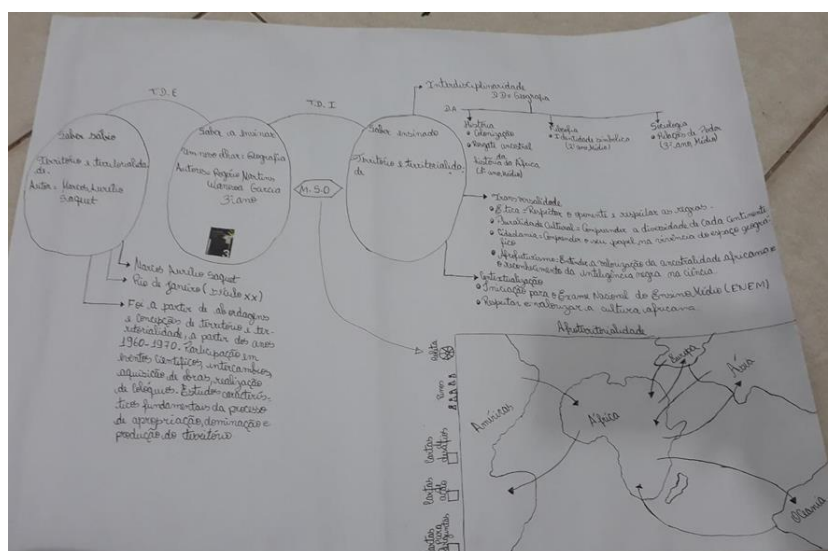 T.D.E
T.D.I
Saber sábio
Território e territorialida
de.
Autor: Marcos Aurélio
Saquet
Saber a ensinar
Um novo olhar: Geografia
Autores: Rogério Martins
Wanessa Garcia
3º ano
M.S.D
Saber ensinado
Território e territorialida
de
Interdisciplinaridade
DD = Geografia
DA
História
• Colonização
• Resgate ancestral
da
história da África
Filosofia
• Identidade simbólica
Sociologia
• Relação de Poder
(3º ano Médio)
Transversalidade
• Ética = Respeitar o oponente e respeitar as regras.
• Pluralidade Cultural = Compreender a diversidade de cada Continente
• Cidadania = Compreender o seu papel na vivência do espaço geográ-
fico
• Afrofuturismo: Entender a valorização da ancetralidade africana e
o reconhecimento da inteligência negra na ciência.
Contextualização
• Iniciação para o Exame Nacional do Ensino Médio (ENEM)
• Respeitar e valorizar a cultura africana
Marcos Aurélio Saquet
Rio de Janeiro (Século XX)
Foi a partir de abordagens
e concepções de território e ter-
ritorialidade, a partir dos anos
1960-1970. Participação em
eventos científicos, intercâmbios,
aquisição de obras, realização
de colóquios. Estudos caracterís-
ticos fundamentais do processo
de apropriação, dominação e
produção do território
Afroterritorialidade
Pinos
Cartas
desafios
Cartas
de
ação
Cartas
para
perguntas
Américas
África
Europa
Ásia
Oceania